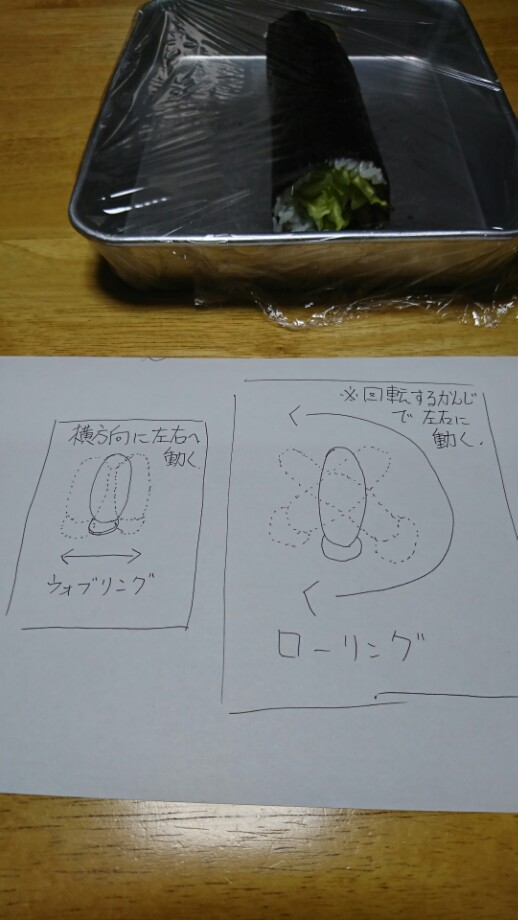 横方向に左右へ
動く
ウォブリング
※回転するかんじ
で左右に
動く.
ローリング